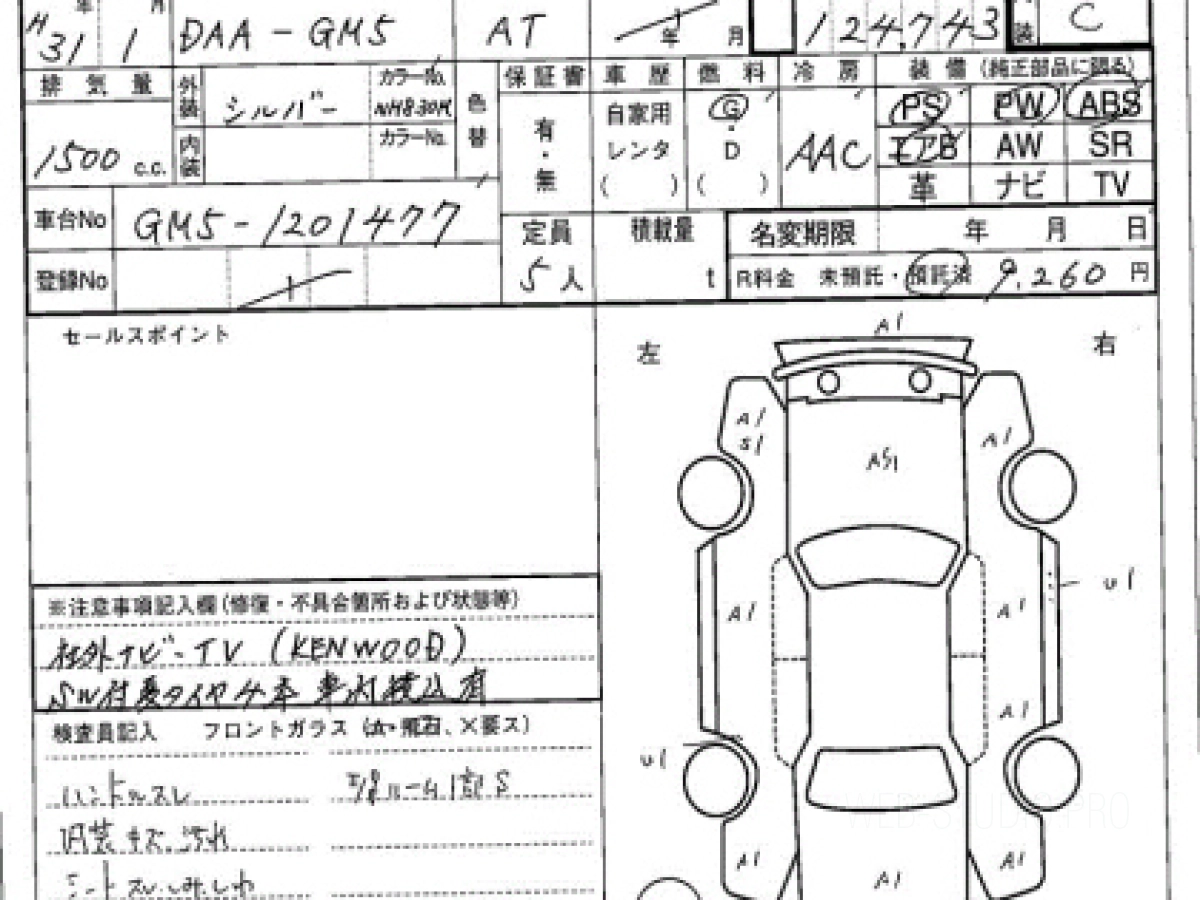 年 月
H31 1 DAA-GM5 AT 年 月 124,743 装 C
排気量 外装 シルバー カラーNo. NH830M 色替 保証書 車歴 燃料 冷房 装備(純正部品に限る)
1500 c.c. 内装 カラーNo. 有・無 自家用 レンタ ( ) G・D ( ) AAC PS PW ABS
エアB AW SR
革 ナビ TV
車台No GM5-1201477 定員 積載量 名変期限 年 月 日
登録No 5人 t R料金 未預託・預託済 9,260 円
セールスポイント
左 A1 右
A1 S1 A1
AS1
※注意事項記入欄(修復・不具合箇所および状態等)
A1 A1 U1
社外ナビ・TV (KENWOOD)
SW付夏タイヤ4本 車内積込有
A1
検査員記入 フロントガラス
U1
ハンドルスレ S
内装キズ汚れ
WEB STUDIO PRO
シートスレ.しみ.しわ
A1 A1 A1